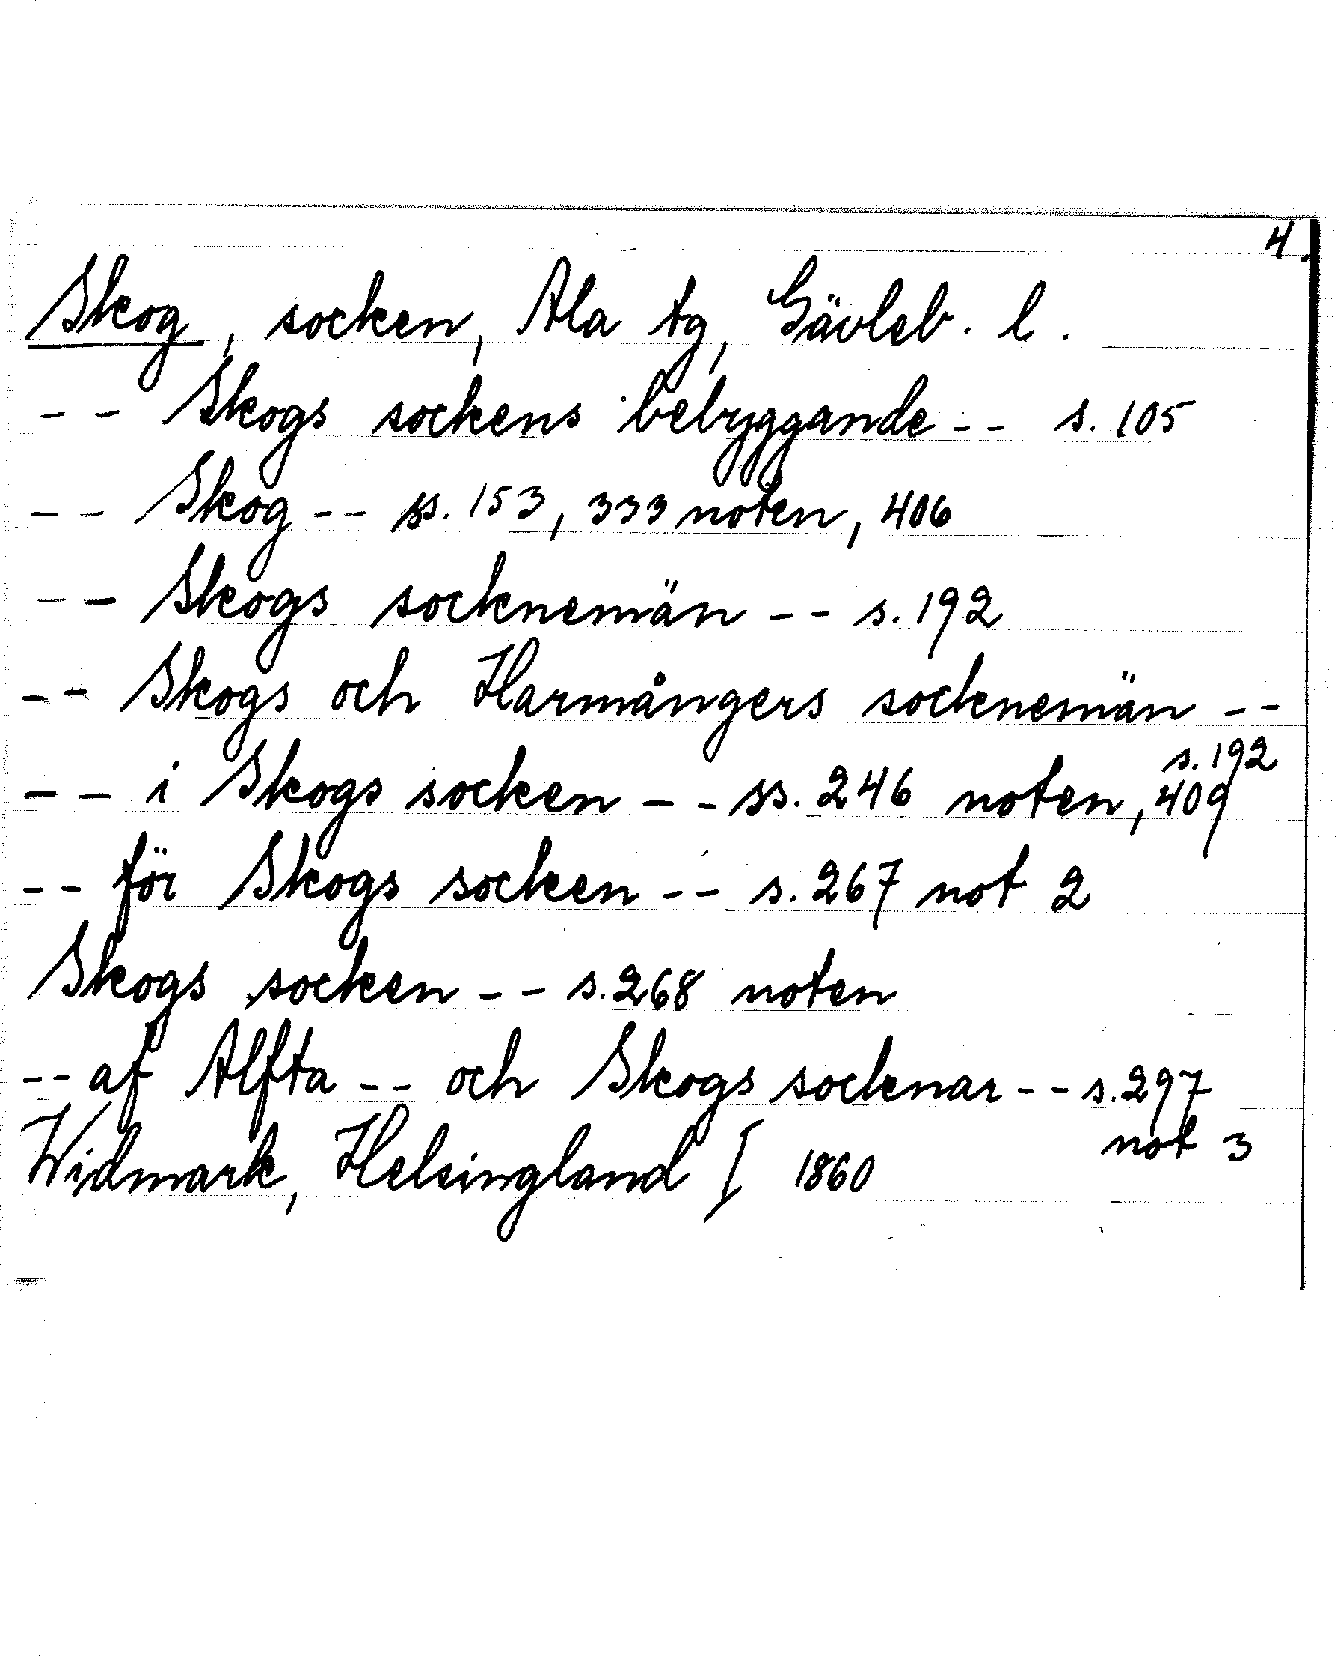 4.
Skog, socken, Ala tg, Gävleb. l.
-- Skogs sockens bebyggande -- s. 105
-- Skog -- ss. 153, 333 noten, 406
-- Skogs socknemän -- s. 192
-- Skogs och Harmångers socknemän --
s. 192
-- i Skogs socken -- ss. 246 noten, 409
-- för Skogs socken -- s. 267 not 2
Skogs socken -- s. 268 noten
-- af Alfta -- och Skogs socknar -- s. 297
not 3
Widmark, Helsingland [ 1860